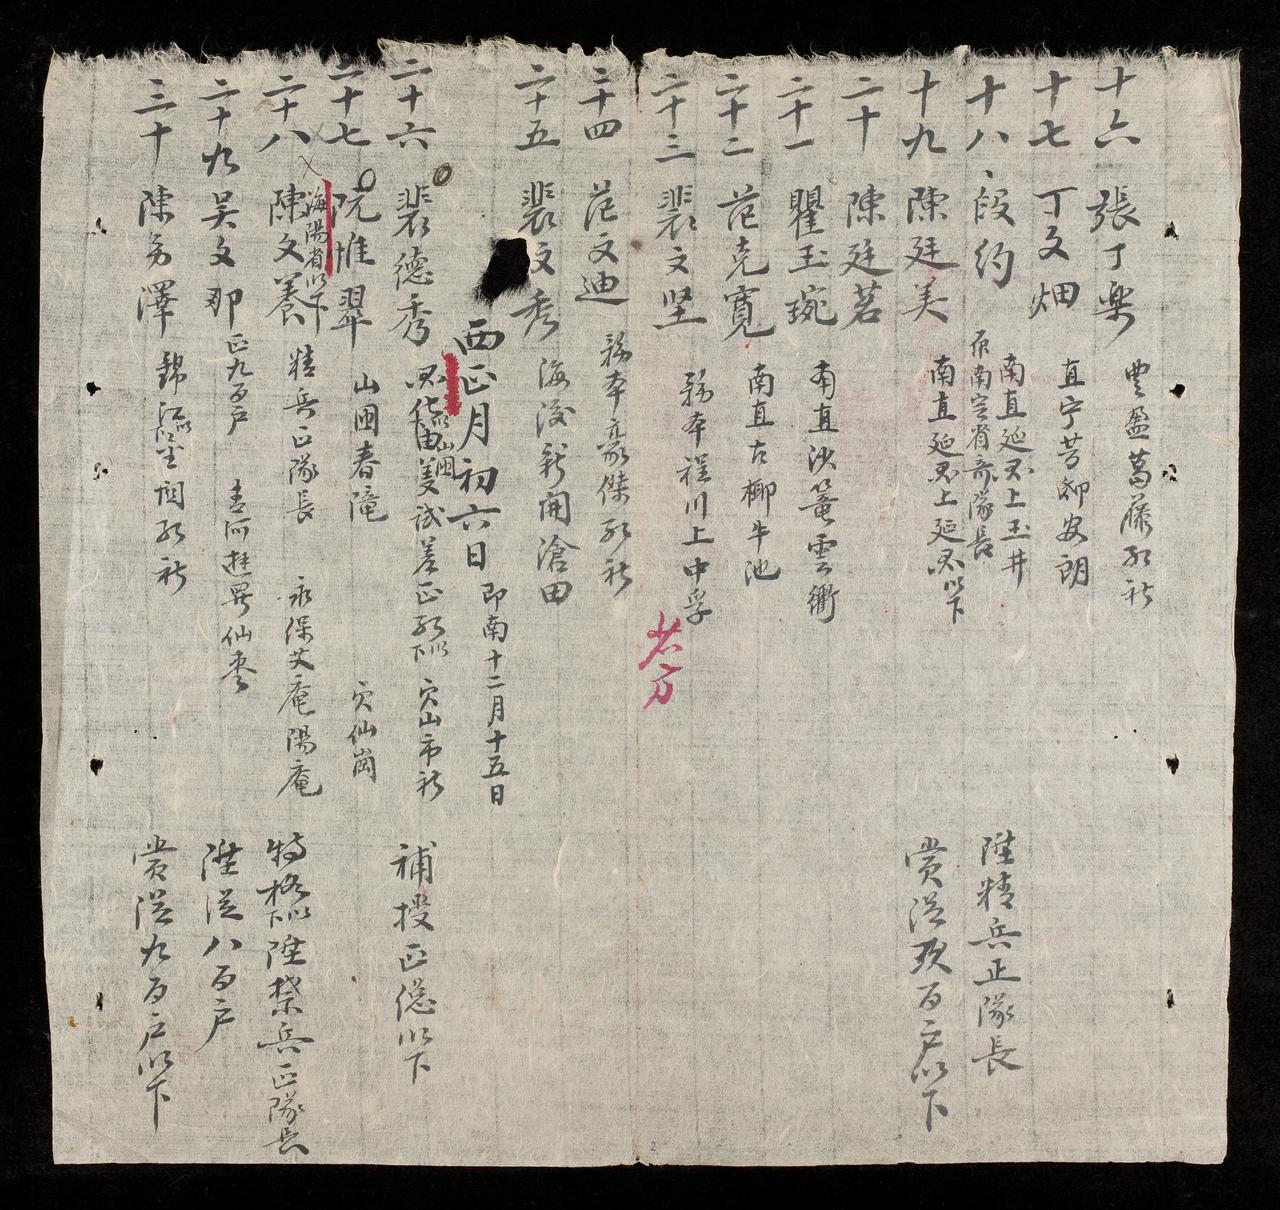 十六 張丁樂 豊盈葛藤 社
十七 丁文畑 直宁芳 安朗
十八 段約 南直延 上玉井 南定省 隊長 陞精兵正隊長
十九 陳廷美 南直延 上延 以下 賞從玖百戸以下
二十 陳廷茗
二十一 瞿玉琬 南直沙篭雲衢
二十二 范克寬 南直古柳牛池
二十三 裴文坚 務本程川上中孚
若方
二十四 范文迪 務本豪傑 社
二十五 裴文秀 海後新開滄田
西正月初六日 即南十二月十五日
二十六 裴德秀 山西 試差正 以下 穴山市社 補授正總以下
二十七 阮惟翠 山西春陸 穴仙崗
海陽省以下
二十八 陳文養 精兵正隊長 永保艾庵陽庵 特格以下陞禁兵正隊長
二十九 吴文那 正九百戸 青河 仙棗 陞從八百戸
三十 陳 澤 錦江 社 賞從九百戸以下